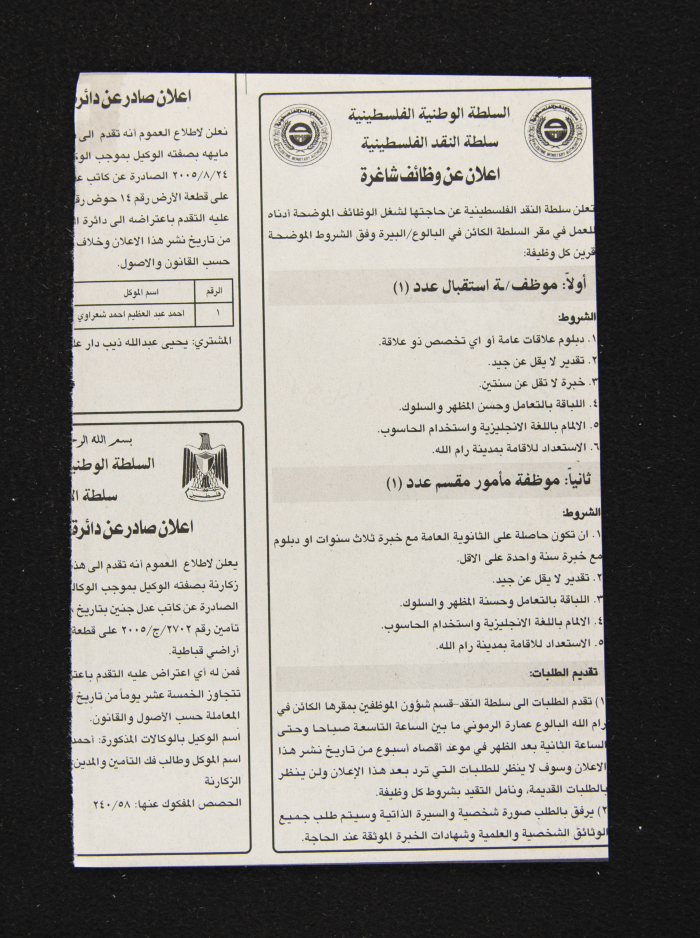 السلطة الوطنية الفلسطينية
سلطة النقد الفلسطينية
اعلان عن وظائف شاغرة
تعلن سلطة النقد الفلسطينية عن حاجتها لشغل الوظائف الموضحة أدناه
للعمل في مقر السلطة الكائن في البالوع/البيرة وفق الشروط الموضحة
قرين كل وظيفة:
أولاً: موظف/ـة استقبال عدد (١)
الشروط:
١. دبلوم علاقات عامة أو اي تخصص ذو علاقة.
٢. تقدير لا يقل عن جيد.
٣. خبرة لا تقل عن سنتين.
٤. اللباقة بالتعامل وحسن المظهر والسلوك.
٥. الالمام باللغة الانجليزية واستخدام الحاسوب.
٦. الاستعداد للاقامة بمدينة رام الله.
ثانياً: موظفة مأمور مقسم عدد (١)
الشروط:
١. ان تكون حاصلة على الثانوية العامة مع خبرة ثلاث سنوات او دبلوم
مع خبرة سنة واحدة على الاقل.
٢. تقدير لا يقل عن جيد.
٣. اللباقة بالتعامل وحسنة المظهر والسلوك.
٤. الالمام باللغة الانجليزية واستخدام الحاسوب.
٥. الاستعداد للاقامة بمدينة رام الله.
تقديم الطلبات:
١) تقدم الطلبات الى سلطة النقد-قسم شؤون الموظفين بمقرها الكائن في
رام الله البالوع عمارة الرموني ما بين الساعة التاسعة صباحا وحتى
الساعة الثانية بعد الظهر في موعد أقصاه أسبوع من تاريخ نشر هذا
الاعلان وسوف لا ينظر للطلبات التي ترد بعد هذا الإعلان ولن ينظر
بالطلبات القديمة، ونامل التقيد بشروط كل وظيفة.
٢) يرفق بالطلب صورة شخصية والسيرة الذاتية وسيتم طلب جميع
الوثائق الشخصية والعلمية وشهادات الخبرة الموثقة عند الحاجة.
اعلان صادر عن دائرة
نعلن لاطلاع العموم أنه تقدم الى
مايهه بصفته الوكيل بموجب
٢٠٠٥/٨/٢٤ الصادرة عن كاتب
على قطعة الأرض رقم ١٤ حوض
عليه التقدم باعتراضه الى دائرة
من تاريخ نشر هذا الاعلان وخلاف
حسب القانون والاصول.
الرقم اسم الموكل
١ احمد عبد العظيم احمد شعراوي
المشتري: يحيى عبدالله ذيب دار
بسم الله
السلطة
سلطة
اعلان صادر عن دائرة
يعلن لاطلاع العموم أنه تقدم الى
زكارنة بصفته الوكيل بموجب
الصادرة عن كاتب عدل جنين بتاريخ
تأمين رقم ٢٧٠٢/ج/٢٠٠٥ على قطعة
أراضي قباطية.
فمن له أي اعتراض عليه التقدم
تتجاوز الخمسة عشر يوماً من تاريخ
المعاملة حسب الأصول والقانون.
أسم الوكيل بالوكالات المذكورة:
اسم الموكل وطالب فك التامين والمدين
الزكارنة
الحصص المفكوك عنها: ٢٤٠/٥٨
فلسطين